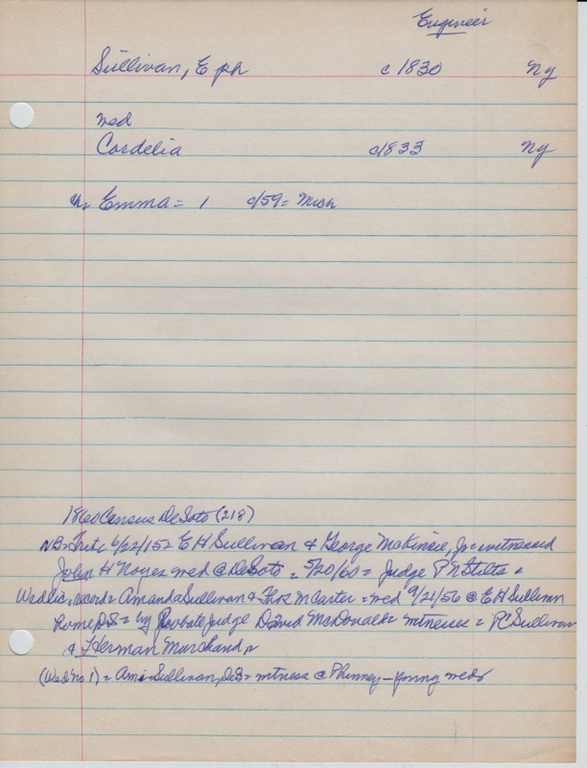 Engineer
Sullivan, Eph c1830 Ny
med
Cordelia c1833 Ny
ch Emma = 1 c/59 = Mich
1860 Census DeSoto (218)
NB = 6/22/152 E H Sullivan & George McKinzie, Jr = witnessed
John H Noyes med @ DeSoto = 5/20/60 = Judge P N Stilts =
record = Amanda Sullivan & Thos McCarter = med 9/21/56 @ E H Sullivan
home DS = by Probate Judge David McDonald = witnesses = R C Sullivan
& Herman Marchand
(Wed No 1) = Sullivan, = witness @ Phinney - young med